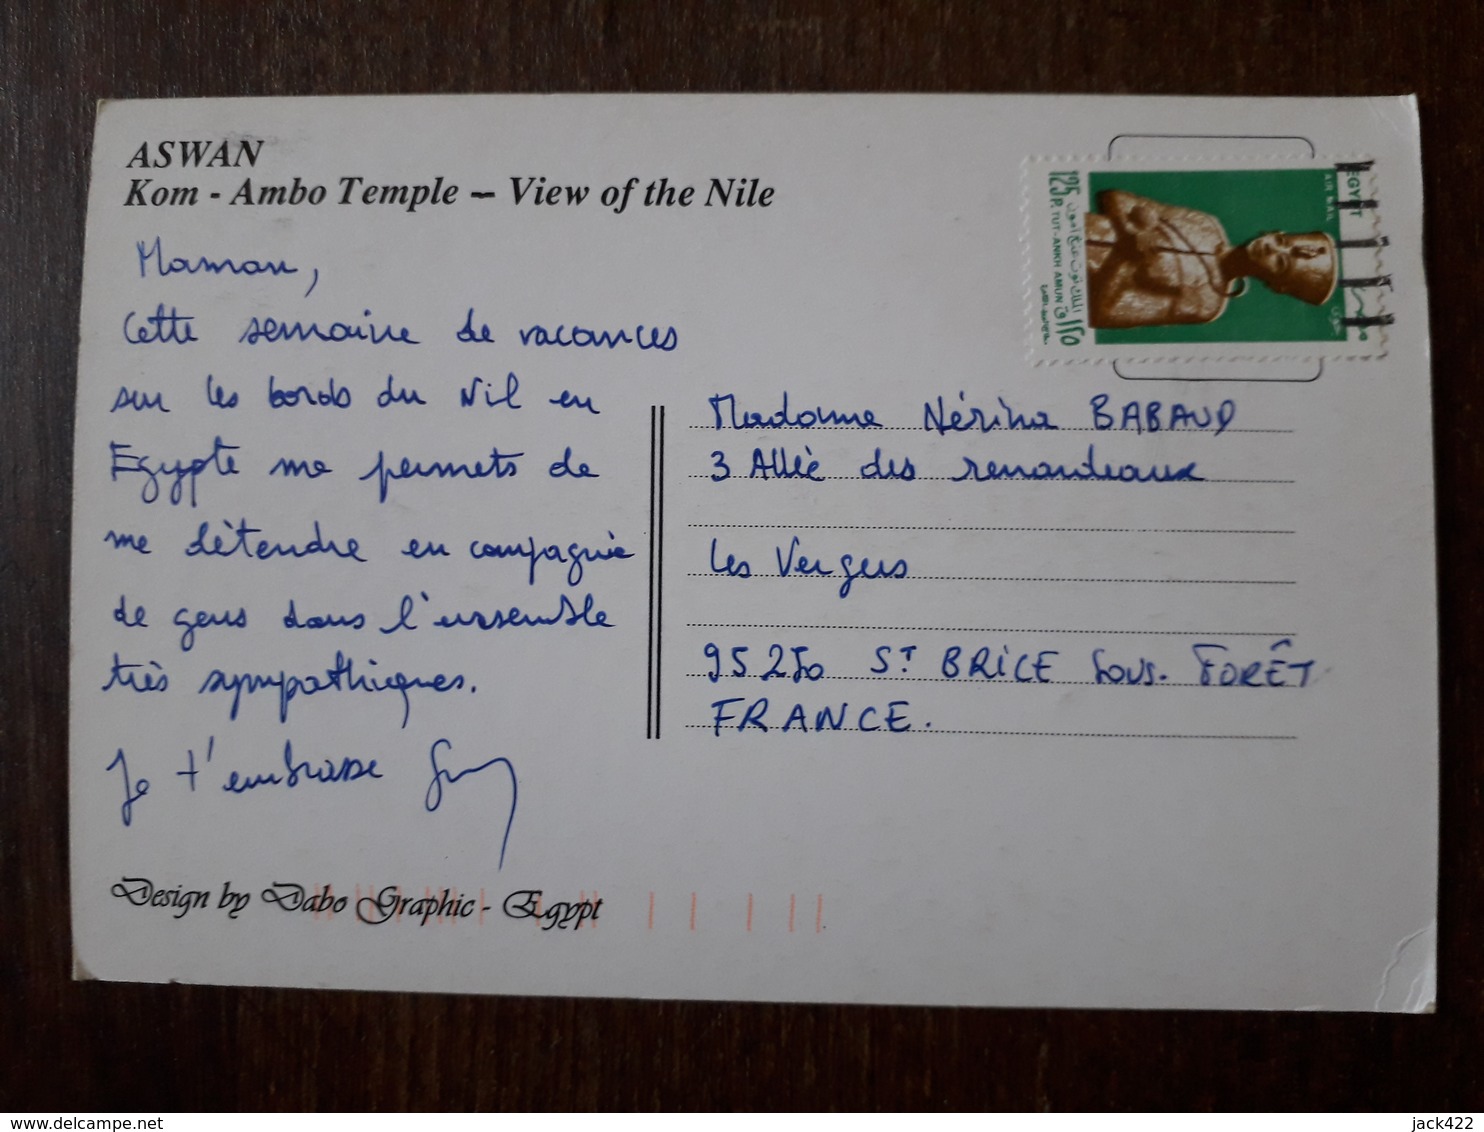 ASWAN
Kom - Ambo Temple – View of the Nile
Maman,
Cette semaine de vacances
sur les bords du Nil en
Egypte me permets de
me détendre en compagnie
de gens dans l'ensemble
très sympathiques.
Je t'embrasse
Design by Dabo Graphic - Egypt
EGYPT
AIR MAIL
125 P.
TUT-ANKH AMUN
الملك توت عنخ آمون
Madame Nérina BABAUD
3 Allée des renardeaux
Les Vergers
95250 ST BRICE Sous. FORÊT
FRANCE.
delcampe.net
jack422